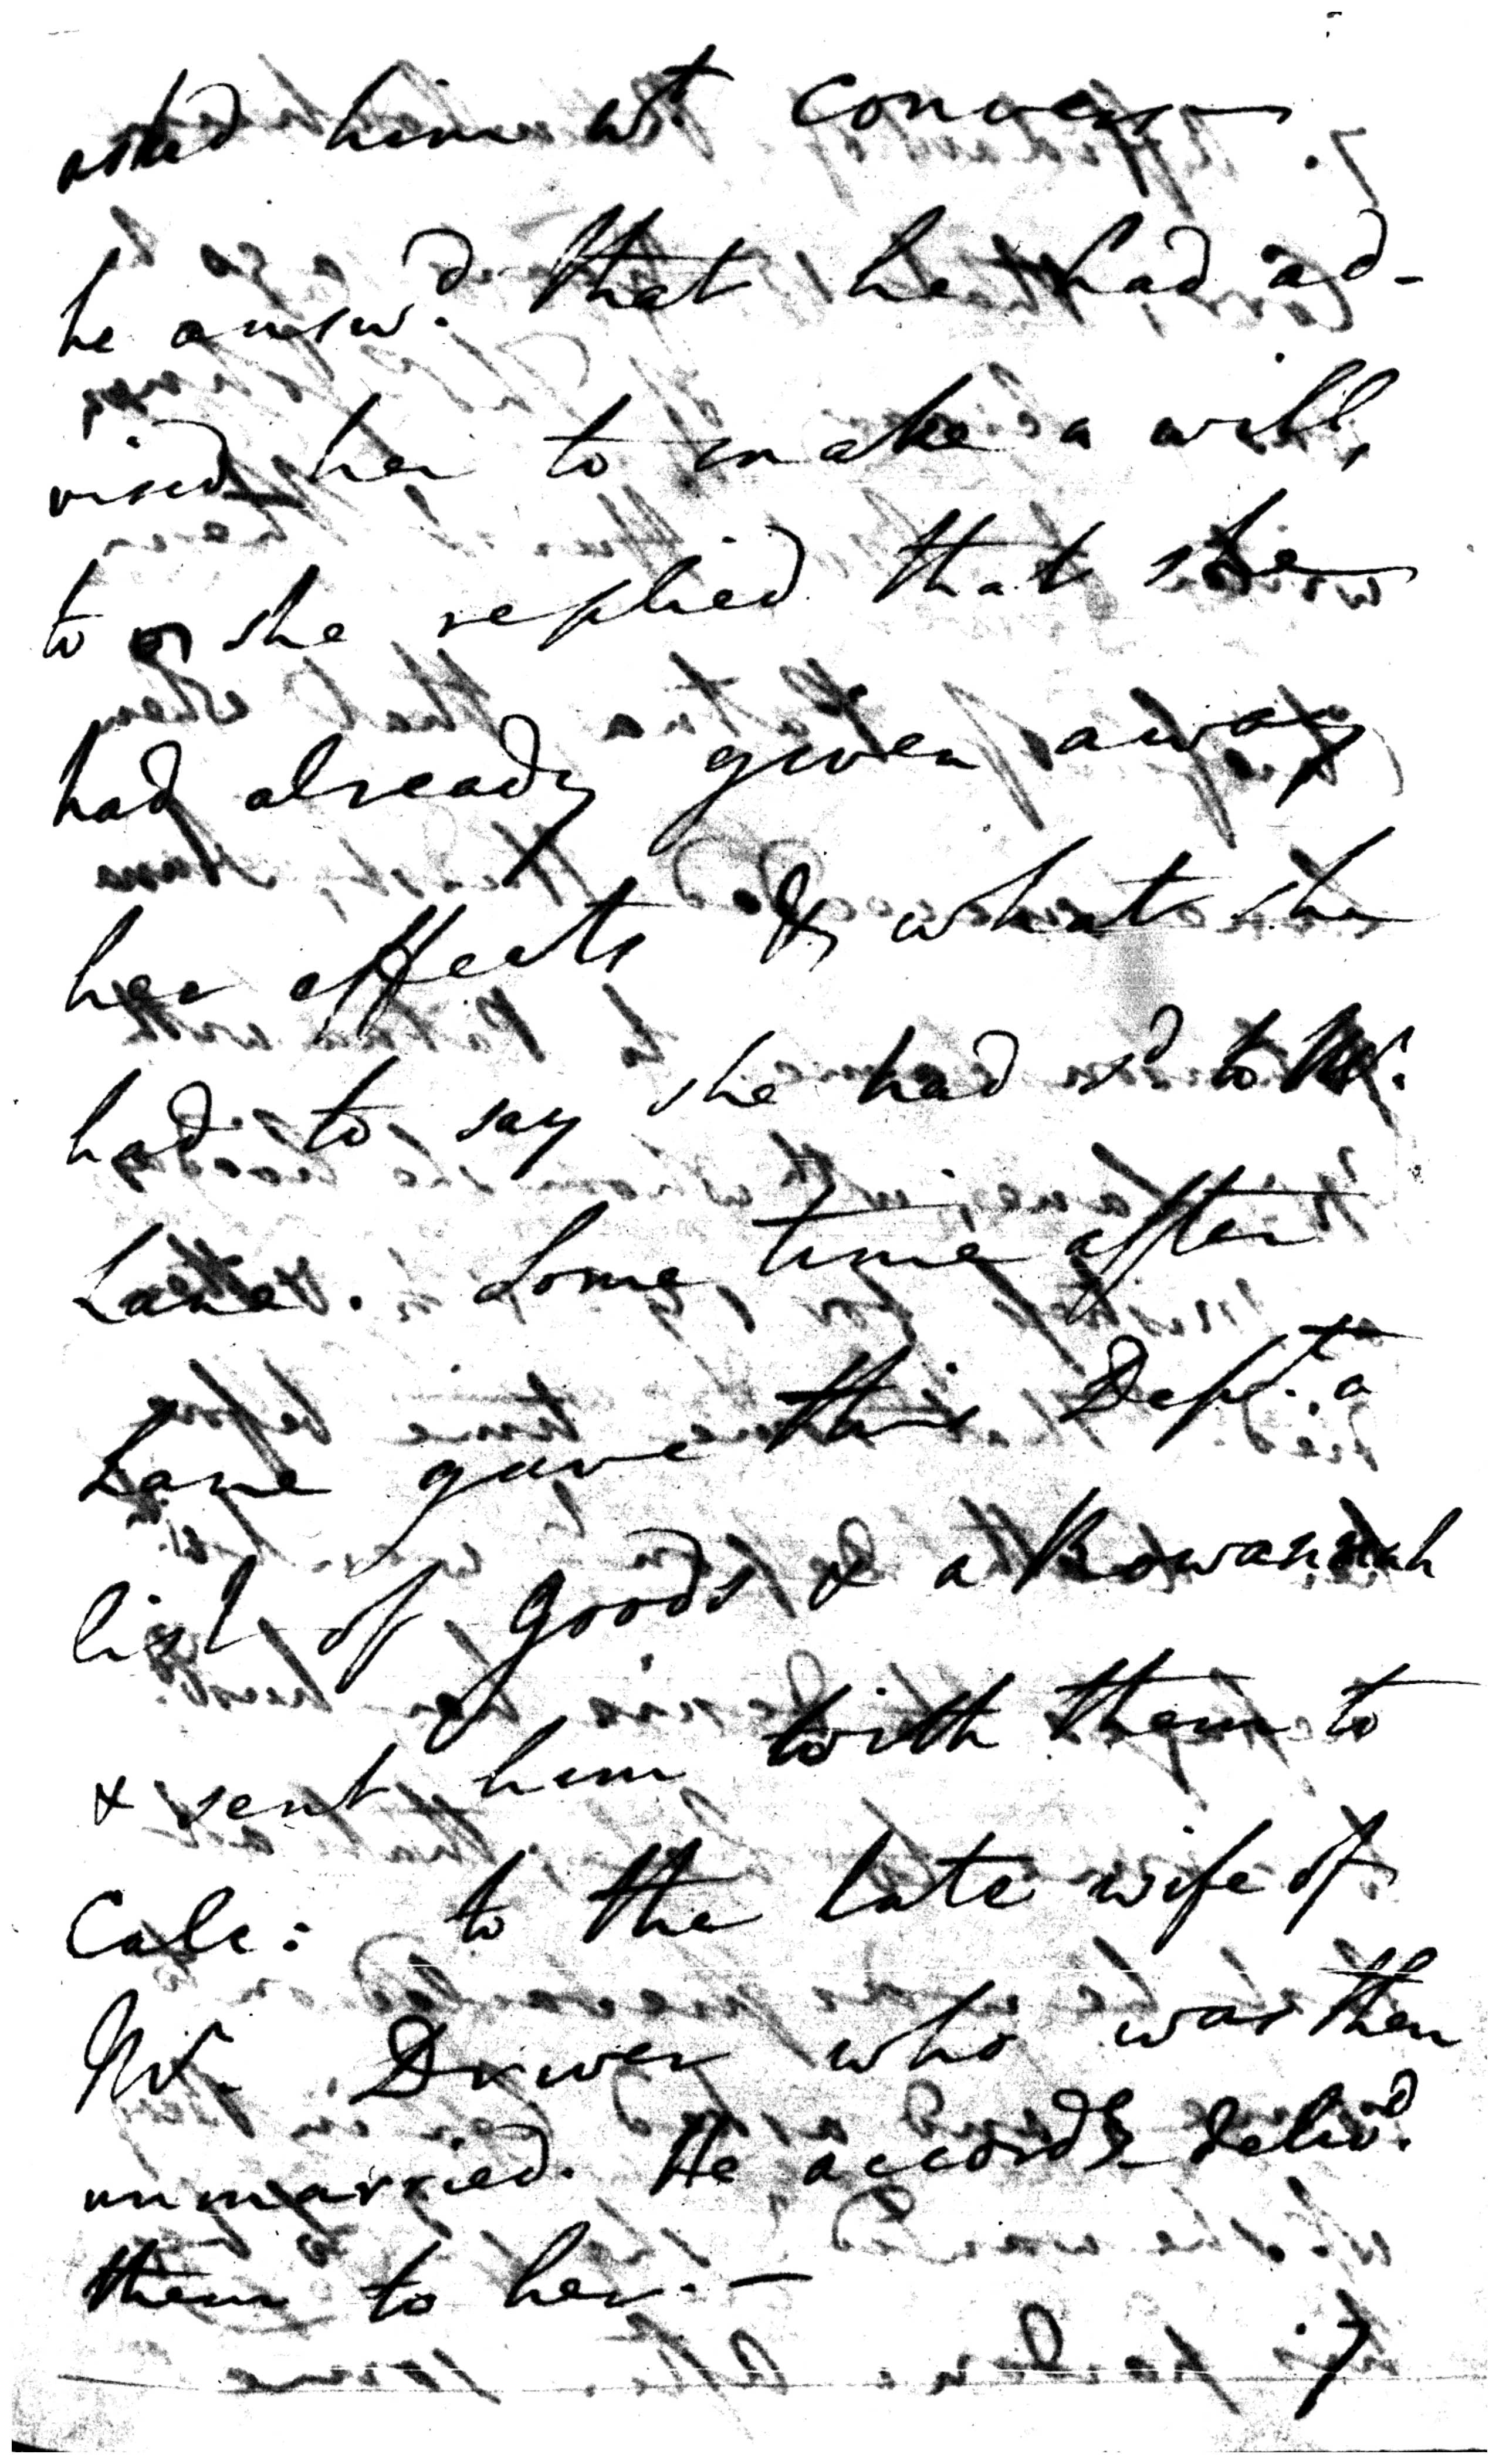 asked him wt. convers—
he answd. that he had ad-
vised her to make a will,
to wh she replied that she
had already given away
her effects & what she
had to say she had sd. to Mr.
Lane. Some time after
Lane gave this Dept. a
list of goods & a Rowannah
& sent him with them to
Calc: to the late wife of
Mr. Driver who was then
unmarried. He accordy. delivd.
them to her. —